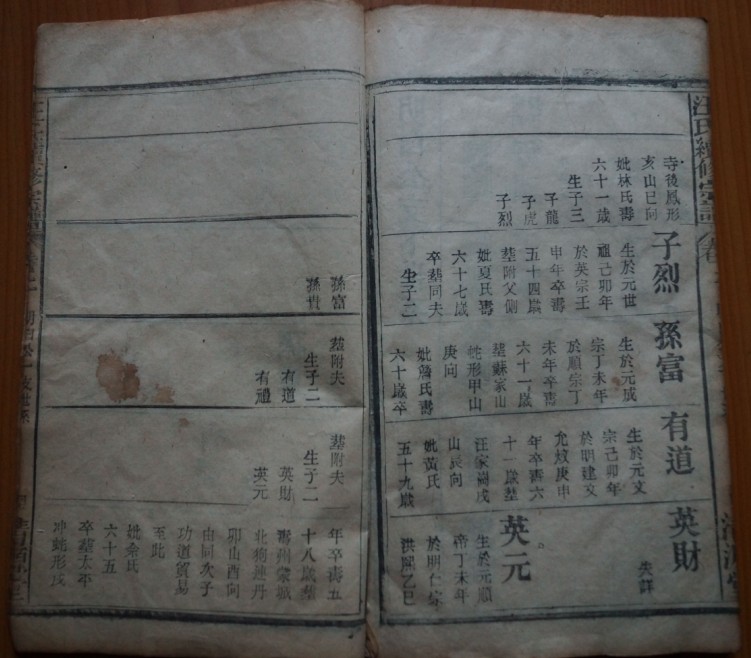 汪氏續修宗譜
寺後鳳形
亥山巳向
妣林氏壽
六十一歲
生子三
子龍
子虎
子烈
子烈
生於元世
祖己卯年
於英宗壬
申年卒壽
五十四歲
塟附父側
妣夏氏壽
六十七歲
卒塟同夫
生子二
孫富
孫貴
孫富
生於元成
宗丁未年
於順宗丁
未年卒壽
六十一歲
塟蘇家山
蛇形甲山
庚向
妣詹氏壽
六十歲卒
塟附夫
生子二
有道
有禮
有道
生於元文
宗己卯年
於明建文
允炆庚申
年卒壽六
十一歲塟
汪家崗戌
山辰向
妣黃氏
五十九歲
塟附夫
生子二
英財
英元
英財
失詳
英元
生於元順
帝丁未年
於明仁宗
洪熙乙巳
年卒壽五
十八歲塟
壽州蒙城
北狗連丹
卯山酉向
由同次子
功道貿易
至此
妣余氏
六十五
卒塟太平
冲蛇形戌
清源堂